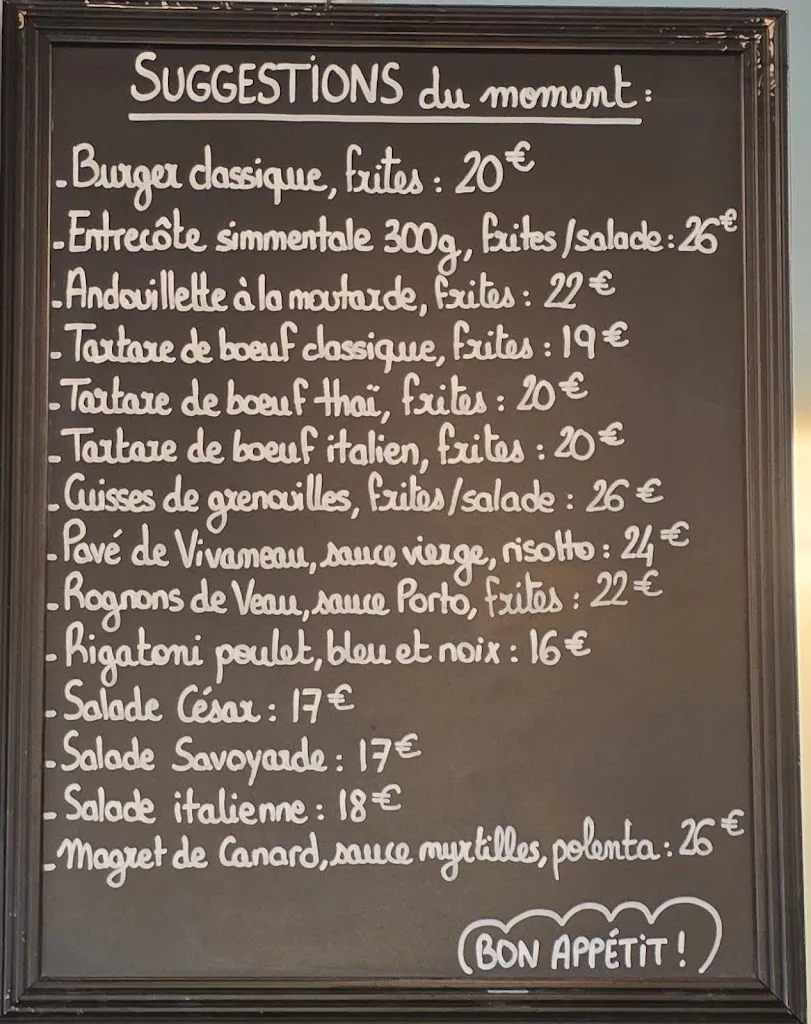 SUGGESTIONS du moment :
- Burger classique, frites : 20€
- Entrecôte simmentale 300g, frites/salade : 26€
- Andouillette à la moutarde, frites : 22€
- Tartare de boeuf classique, frites : 19€
- Tartare de boeuf thaï, frites : 20€
- Tartare de boeuf italien, frites : 20€
- Cuisses de grenouilles, frites/salade : 26€
- Pavé de Vivaneau, sauce vierge, risotto : 24€
- Rognons de Veau, sauce Porto, frites : 22€
- Rigatoni poulet, bleu et noix : 16€
- Salade César : 17€
- Salade Savoyarde : 17€
- Salade italienne : 18€
- Magret de Canard, sauce myrtilles, polenta : 26€
BON APPÉTIT !